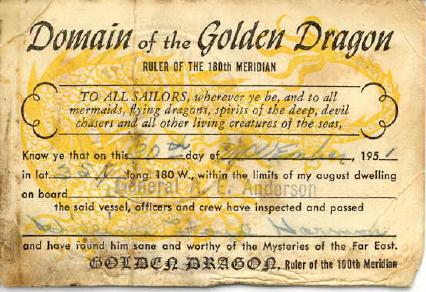 Domain of the Golden Dragon
RULER OF THE 180th MERIDIAN
TO ALL SAILORS, wherever ye be, and to all
mermaids, flying dragons, spirits of the deep, devil
chasers and all other living creatures of the seas,
Know ye that on this day of November, 1951
in lat. long. 180 W., within the limits of my august dwelling
General A. E. Anderson
on board
the said vessel, officers and crew have inspected and passed
Harmon
and have found him sane and worthy of the Mysteries of the Far East.
GOLDEN DRAGON, Ruler of the 180th Meridian